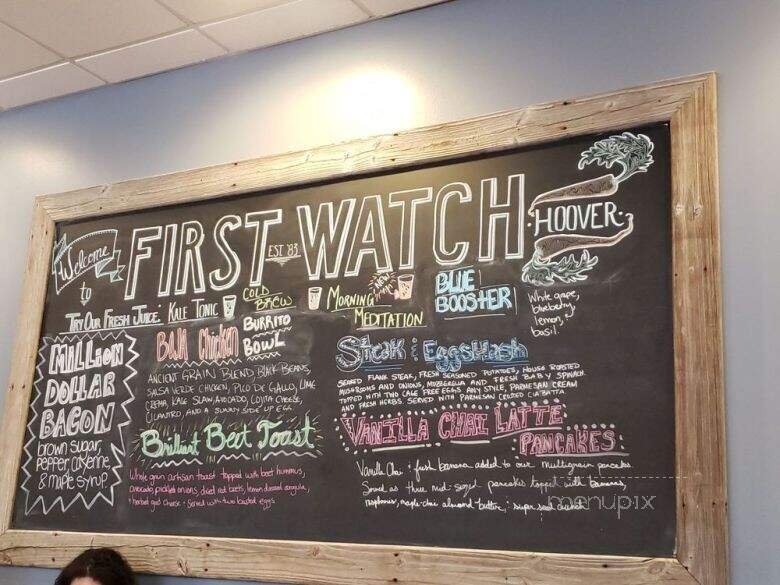 Welcome
to
FIRST WATCH
EST '83
HOOVER
TRY OUR FRESH JUICE. KALE TONIC
COLD
BREW
NEW!
MORNING
MEDITATION
BLUE
BOOSTER
White grape,
blueberry,
lemon, &
basil.
MILLION
DOLLAR
BACON
brown sugar,
pepper, cayenne,
& maple syrup
BAJA Chicken
BURRITO
BOWL
ANCIENT GRAIN BLEND BLACK BEANS,
SALSA VERDE CHICKEN, PICO DE GALLO, LIME
CREMA, KALE SLAW, AVOCADO, COJITA CHEESE,
CILANTRO, AND A SUNNY SIDE UP EGG
Brilliant Beet Toast
Whole grain artisan toast topped with beet hummus,
avocado, pickled onions, diced red beets, lemon dressed arugula,
herbed goat cheese. Served with two basted eggs
STEAK & EggsHASH
SEARED FLANK STEAK, FRESH SEASONED POTATOES, HOUSE ROASTED
MUSHROOMS AND ONIONS, MOZZERELLA AND FRESH BABY SPINACH
TOPPED WITH TWO CAGE FREE EGGS ANY STYLE, PARMESAN CREAM
AND FRESH HERBS. SERVED WITH PARMESAN CRUSTED CIABATTA
VANILLA CHAI LATTE
PANCAKES
Vanilla Chai & fresh banana added to our multigrain pancakes
Served as three mid-sized pancakes topped with bananas,
raspberries, maple-chai almond butter, & super seed crunch
menupix